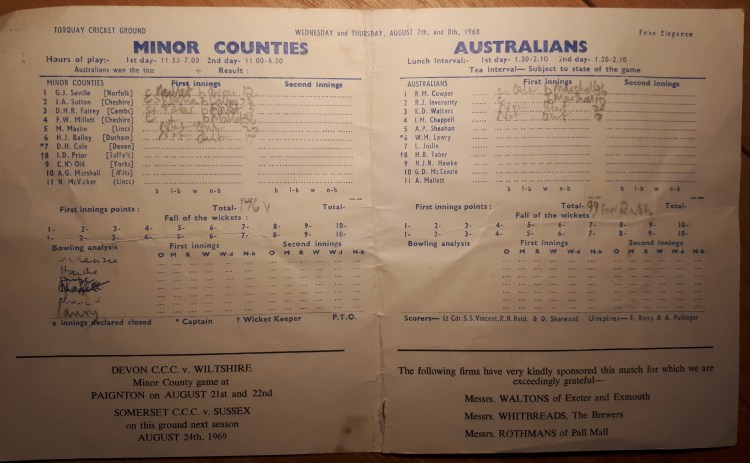 TORQUAY CRICKET GROUND
WEDNESDAY and THURSDAY, AUGUST 7th, and 8th, 1968
MINOR COUNTIES
Hours of play:- 1st day- 11.30-7.00 2nd day- 11.00-6.30
Australians won the toss + Result :
MINOR COUNTIES First innings Second innings
1 G.J. Saville [Norfolk]
2 J.A. Sutton [Cheshire]
3 D.H.R. Fairey [Cambs]
4 F.W. Millett [Cheshire]
5 M. Maslin [Lincs]
6 H.J. Bailey [Durham]
*7 D.H. Cole [Devon]
†8 I.D. Prior [Suffolk]
9 C.M. Old [Yorks]
10 A.G. Marshall [Wilts]
11 N. McVicker [Lincs]
b l-b w n-b b l-b w n-b
First innings points : Total- 176 Total-
Fall of the wickets :
1- 2- 3- 4- 5- 6- 7- 8- 9- 10-
1- 2- 3- 4- 5- 6- 7- 8- 9- 10-
Bowling analysis First innings Second innings
O M R W W-d N-b O M R W W-d N-b
Hawke
Lawry
x innings declared closed * Captain † Wicket Keeper P.T.O.
DEVON C.C.C. v. WILTSHIRE
Minor County game at
PAIGNTON on AUGUST 21st and 22nd
SOMERSET C.C.C. v. SUSSEX
on this ground next season
AUGUST 24th, 1969
Price Sixpence
AUSTRALIANS
Lunch Interval:- 1st day- 1.30-2.10 2nd day- 1.30-2.10
Tea Interval— Subject to state of the game
AUSTRALIANS First innings Second innings
1 R.M. Cowper
2 R.J. Inverarity
3 K.D. Walters
4 I.M. Chappell
5 A.P. Sheahan
*6 W.M. Lawry
7 L. Joslin
†8 H.B. Taber
9 N.J.N. Hawke
10 G.D. McKenzie
11 A. Mallett
b l-b w n-b b l-b w n-b
First innings points : Total- 99 For 2 wkts Total-
Fall of the wickets :
1- 2- 3- 4- 5- 6- 7- 8- 9- 10-
1- 2- 3- 4- 5- 6- 7- 8- 9- 10-
Bowling analysis First innings Second innings
O M R W W-d N-b O M R W W-d N-b
Scorers— Lt Cdr. S.S. Vincent, R.N. Retd. & D. Sherwood Umpires— E. Berry & A. Pallinger
The following firms have very kindly sponsored this match for which we are
exceedingly grateful—
Messrs. WALTONS of Exeter and Exmouth
Messrs. WHITBREADS, The Brewers
Messrs. ROTHMANS of Pall Mall